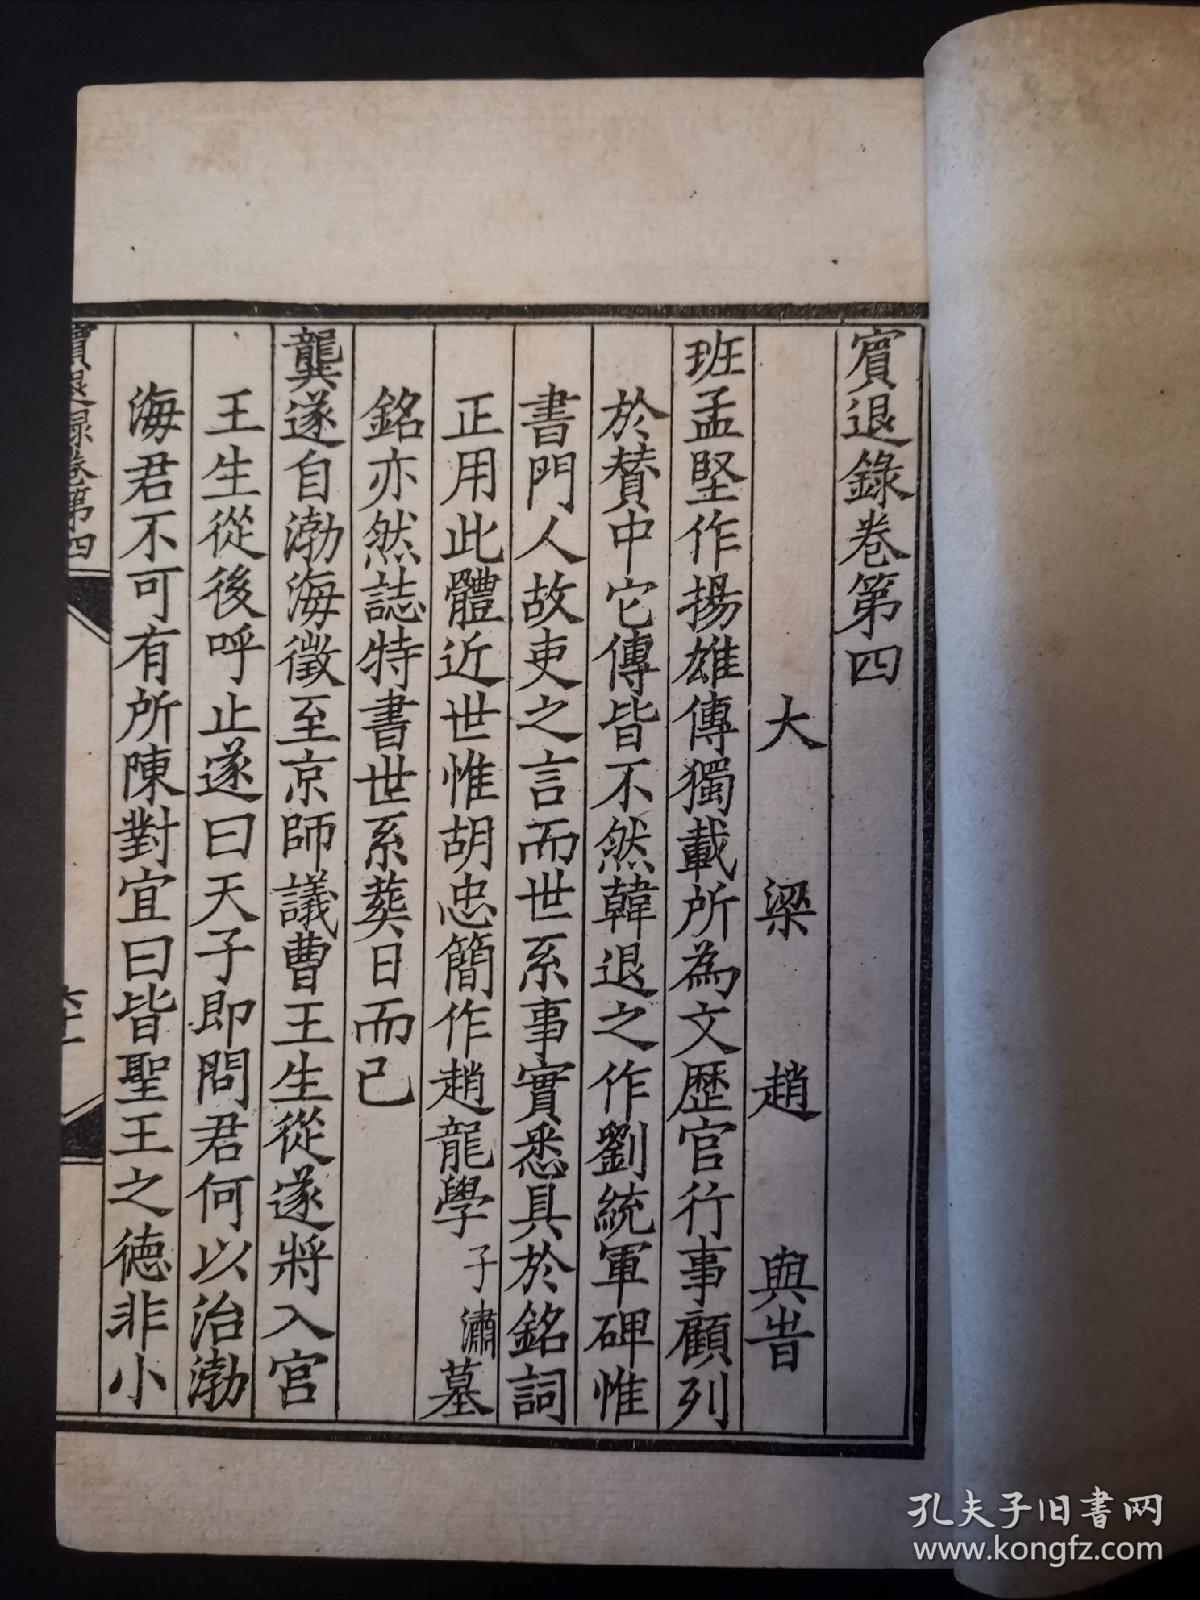 賔退錄卷第四
大梁趙與旹
班孟堅作揚雄傳獨載所為文歷官行事顧列
於賛中它傳皆不然韓退之作劉統軍碑惟
書門人故吏之言而世系事實悉具於銘詞
正用此體近世惟胡忠簡作趙龍學子潚墓
銘亦然誌特書世系葬日而已
龔遂自渤海徵至京師議曹王生從遂將入宮
王生從後呼止遂曰天子即問君何以治渤
海君不可有所陳對宜曰皆聖王之德非小
賔退録卷第四
孔夫子旧书网
www.kongfz.com